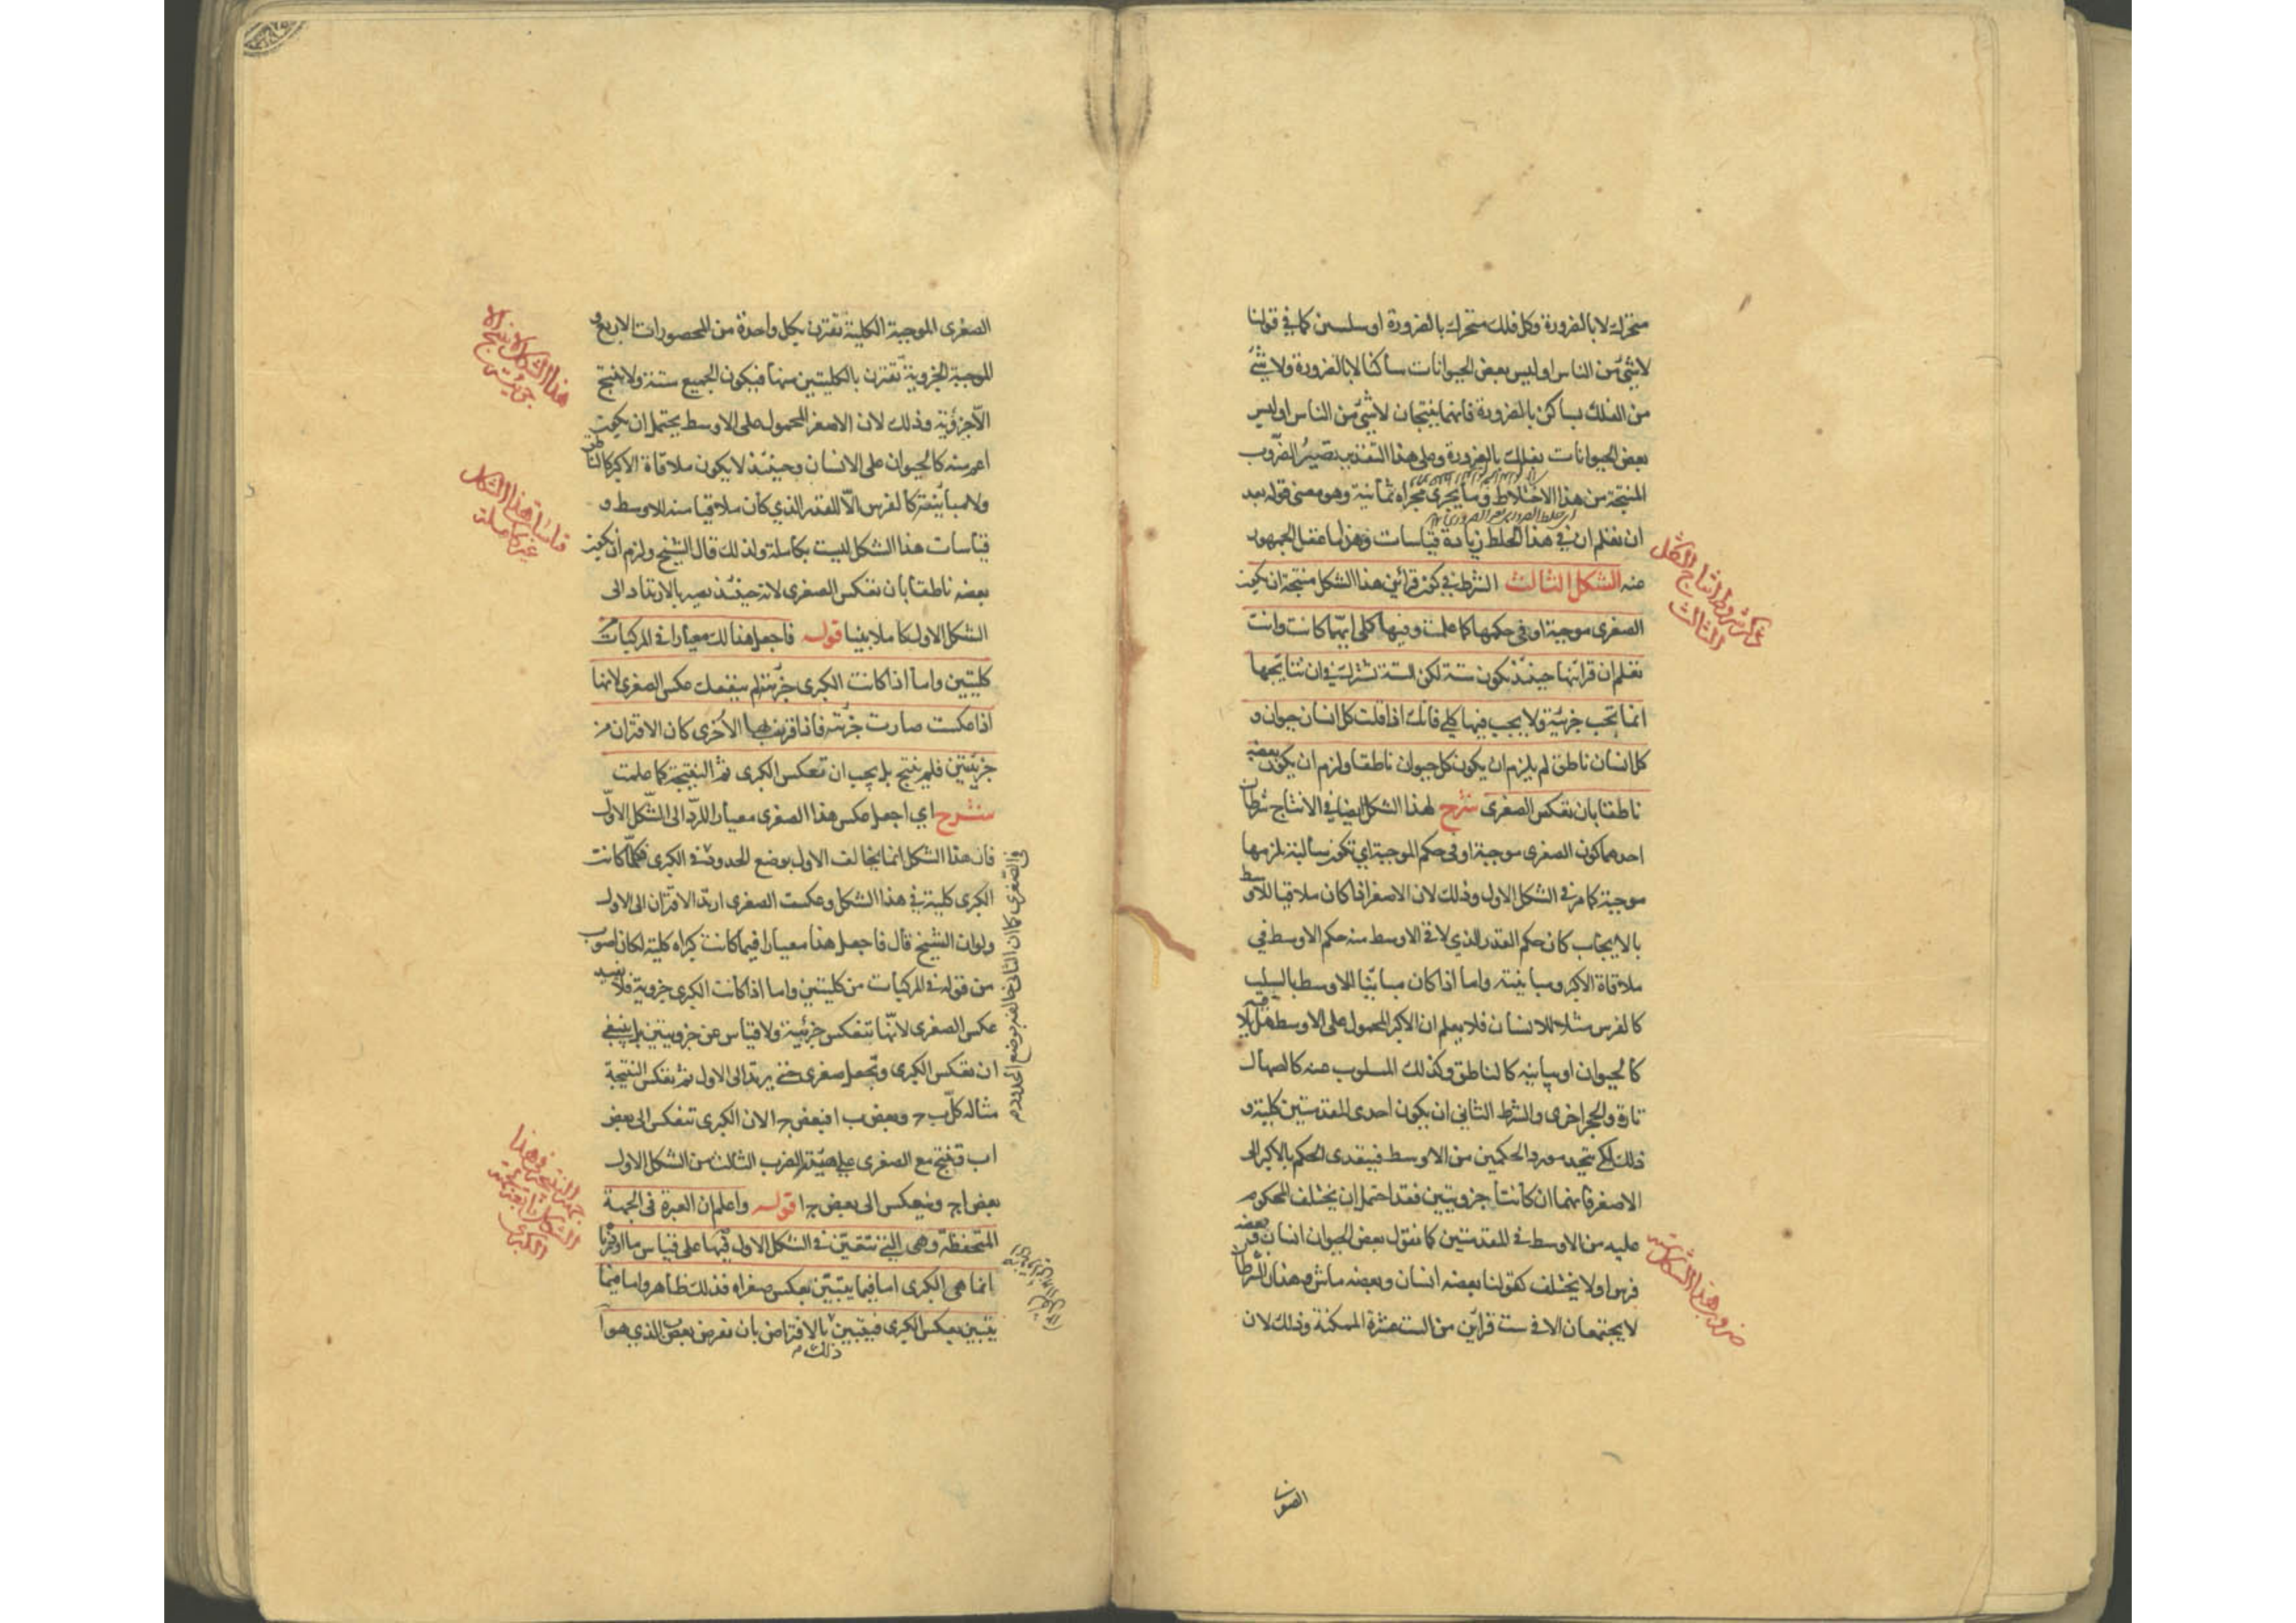 متحرك لا بالضرورة وكل فلك متحرك بالضرورة او سلبين كما في قولنا
لا شئ من الناس او ليس بعض الحيوانات ساكنا لا بالضرورة ولا شئ
من الفلك بساكن بالضرورة فانهما ينتجان لا شئ من الناس او ليس
بعض الحيوانات بفلك بالضرورة وعلى هذا التقدير تصير الضروب
المنتجة من هذا الاختلاط وما يجرى مجراه ثمانية وهو معنى قوله بعد
ان تعلم ان في هذا الخلط زيادة قياسات وهذا مما غفل الجمهور
عنه الشكل الثالث الشرط في كون قرائن هذا الشكل منتجة ان يكون
الصغرى موجبة او في حكمها كما علمت وفيها كلى ايهما كانت وانت
تعلم ان قرائنها حينئذ يكون ستة لكن الستة تشترك في ان نتائجها
انما تجب جزئية ولا يجب فيها كلى فانك اذا قلت كل انسان حيوان و
كل انسان ناطق لم يلزم ان يكون كل حيوان ناطقا ولزم ان يكون بعضه
ناطقا بان تعكس الصغرى شرح لهذا الشكل ايضا في الانتاج شرطان
احدهما كون الصغرى موجبة او في حكم الموجبة اي تكون سالبة يلزمها
موجبة كما مر في الشكل الاول وذلك لان الاصغر اذا كان ملاقيا للاوسط
بالايجاب كان حكم القدر الذي لاقى الاوسط منه حكم الاوسط في
ملاقاة الاكبر ومباينته واما اذا كان مباينا للاوسط بالسلب
كالفرس مثلا للانسان فلا يعلم ان الاكبر المحمول على الاوسط هل يلاقيه
كالحيوان او يباينه كالناطق وكذلك المسلوب عنه كالصهال
تارة والحجر اخرى والشرط الثاني ان يكون احدى المقدمتين كلية و
ذلك لكى يتحد مورد الحكمين من الاوسط فيتعدى الحكم بالاكبر الى
الاصغر فانهما ان كانتا جزويتين فقد احتمل ان يختلف المحكوم
عليه من الاوسط في المقدمتين كما نقول بعض الحيوان انسان وبعضه
فرس او لا يختلف كقولنا بعضه انسان وبعضه ماش وهذان الشرطان
لا يجتمعان الا في ست قرائن من الست عشرة الممكنة وذلك لان
الصو
ذكر شروط انتاج الشكل
الثالث
ضروب هذا الشكل ستة
الصغرى الموجبة الكلية تقترن بكل واحدة من المحصورات الاربع و
الموجبة الجزوية تقترن بالكليتين منها فيكون الجميع ستة ولا ينتج
الا جزؤية وذلك لان الاصغر المحمول على الاوسط يحتمل ان يكون
اعم منه كالحيوان على الانسان وحينئذ لا يكون ملاقاة الاكبر كالناطق
ولا مباينته كالفرس الا للقدر الذي كان ملاقيا منه للاوسط و
قياسات هذا الشكل ليست بكاملة ولذلك قال الشيخ ولزم ان يكون
بعضه ناطقا بان تعكس الصغرى لانه حينئذ يصير بالارتداد الى
الشكل الاول كاملا بينا قوله فاجعل هذا لك معيارا في المركبات
كليتين واما اذا كانت الكبرى جزئية لم ينفعك عكس الصغرى لانها
اذا عكست صارت جزئية فاذا قرنت بها الاخرى كان الاقتران من
جزئيتين فلم ينتج بل يجب ان تعكس الكبرى ثم النتيجة كما علمت
شرح اي اجعل عكس هذا الصغرى معيارا للرد الى الشكل الاول
فان هذا الشكل انما يخالف الاول بوضع الحدود في الكبرى فكلما كانت
الكبرى كلية في هذا الشكل وعكست الصغرى ارتد الاقتران الى الاول
ولو ان الشيخ قال فاجعل هذا معيارا فيما كانت كبراه كلية لكان اصوب
من قوله في المركبات من كليتين واما اذا كانت الكبرى جزوية فلا يفيد
عكس الصغرى لانها تنعكس جزئية ولا قياس عن جزويتين بل ينبغي
ان تعكس الكبرى وتجعل صغرى حتى يرتد الى الاول ثم تعكس النتيجة
مثاله كل ب ج وبعض ب ا فبعض ج ا لان الكبرى تنعكس الى بعض
ا ب وتنتج مع الصغرى على هيئة الضرب الثالث من الشكل الاول
بعض ا ج وينعكس الى بعض ج ا قوله واعلم ان العبرة في الجهة
المتحفظة وهى التي تتعين في الشكل الاول فيها على قياس ما اوردنا
انما هى الكبرى اما فيما يتبين بعكس صغراه فذلك ظاهر واما فيما
يتبين بعكس الكبرى فيتبين بالافتراض بان نفرض بعض ب الذي هو ا
ذلك م
هذا الشكل لا ينتج الا
جزئيتين
قياسات هذا الشكل
غير كاملة
في الصغرى كما ان الثاني خالفه بوضع الحدود م